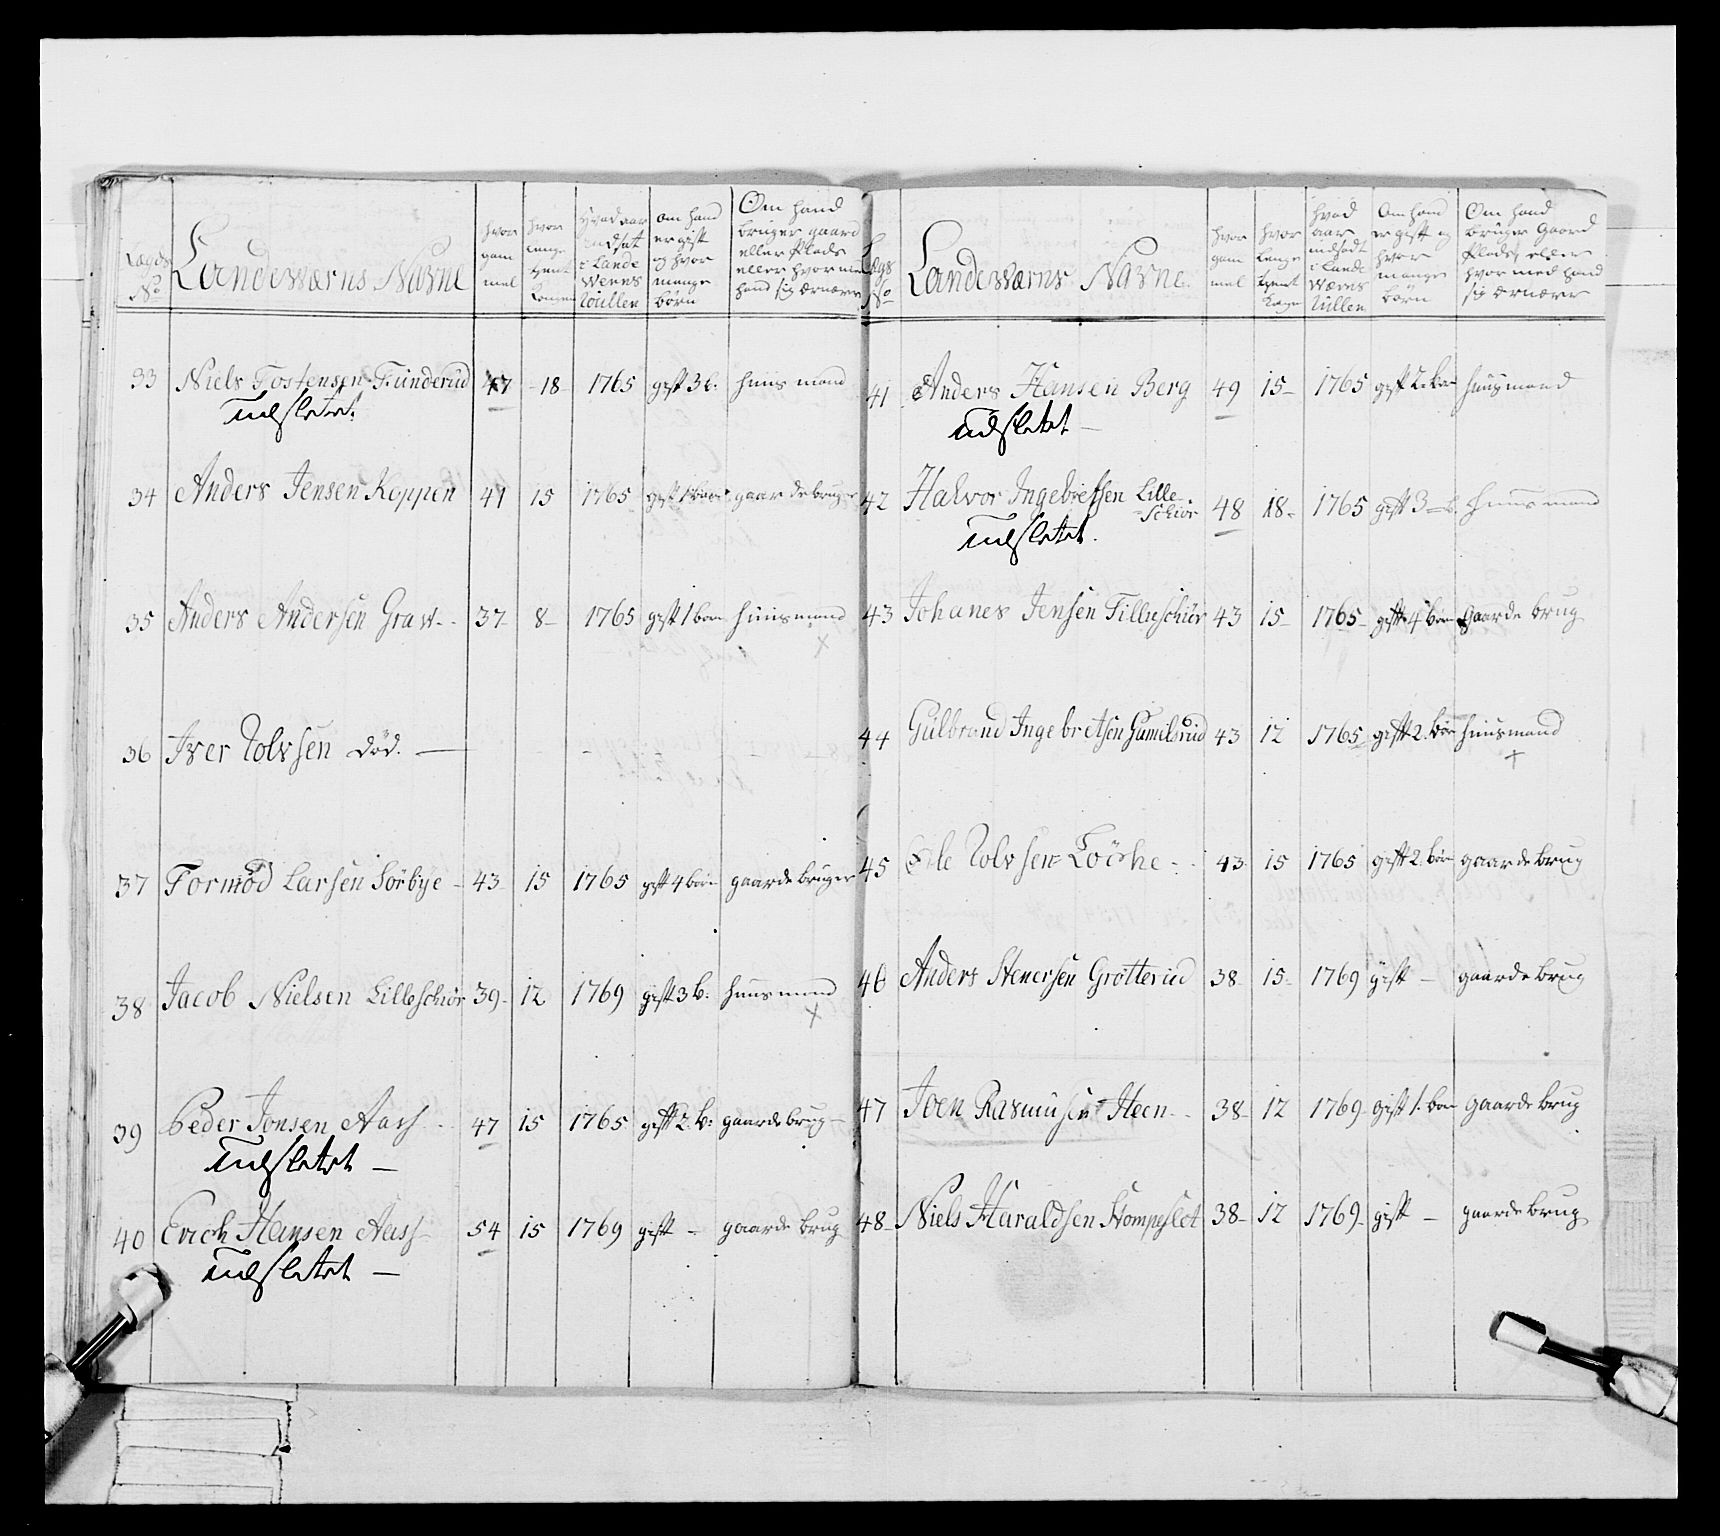 Lægds No
Landeværns Navne
hvor gam mel
hvor lenge tient Kongen
Hvad aar indsat i Lande Wærns Rullen
om hand er gift og hvor mange børn
Om hand bruger gaard eller Plads eller hvor med hand sig ærnærer
33 Niels Tostensen Funderud 47 - 18 - 1765 gift 3 b: huusmand
Udslettet.
34 Anders Jensen Koppen 41 15 1765 gift 1 børn gaardebruger
35 Anders Andersen Graw - - 37 - 8 - 1765 gift 1 børn huusmand
+
36 Iver Rolvsen død. —
37 Tormod Larsen Sørbye - 43 15 1765 gift 4 børn gaardebruger
38 Jacob Nielsen Lilleschiør 39 - 12 1769 gift 3 b: huusmand
+
39 Peder Jonsen Aass - 47 15 1765 gift 2 b: gaardebrug -
Udslettet —
40 Erich Hansen Aass - 54 15 1769 gift - gaarde brug
Udslettet —
Lægs No
Landeværns Navne.
hvor gam mel
hvor lenge tient Kongen
hvad aar indsadt i Lande Wærns Rullen
Om hand er gift og hvor mange børn
Om hand bruger Gaard Plads, eller hvor med hand sig ærnærer
41 Anders Hansen Berg 49 15 - 1765 huusmand
Udslettet —
42 Halvor Ingebretsen Lille-
Schiør 48 18 - 1765 gift 3 - b. huusmand
Udslettet.
43 Johanes Jensen Tilleschiør 43 15 - 1765 - gift 4 børn gaarde brug
44 Gulbrand Ingebretsen Gumelsrud 43 12 1765 gift 2. børn huusmand
+
45 Ole Rolvsen Löche - . 43 15 1765 gift 2. børn gaardebrug
46 Anders Stenersen Grotterud 38 - 15 - 1769 gift - gaardebrug
47 Joen Rasmusen Heen - - 38 - 12 1769 - gift 1. børn gaardebrug
48 - Niels Haraldsen Stompeslet 38 - 12 1769 - gift - gaardebrug